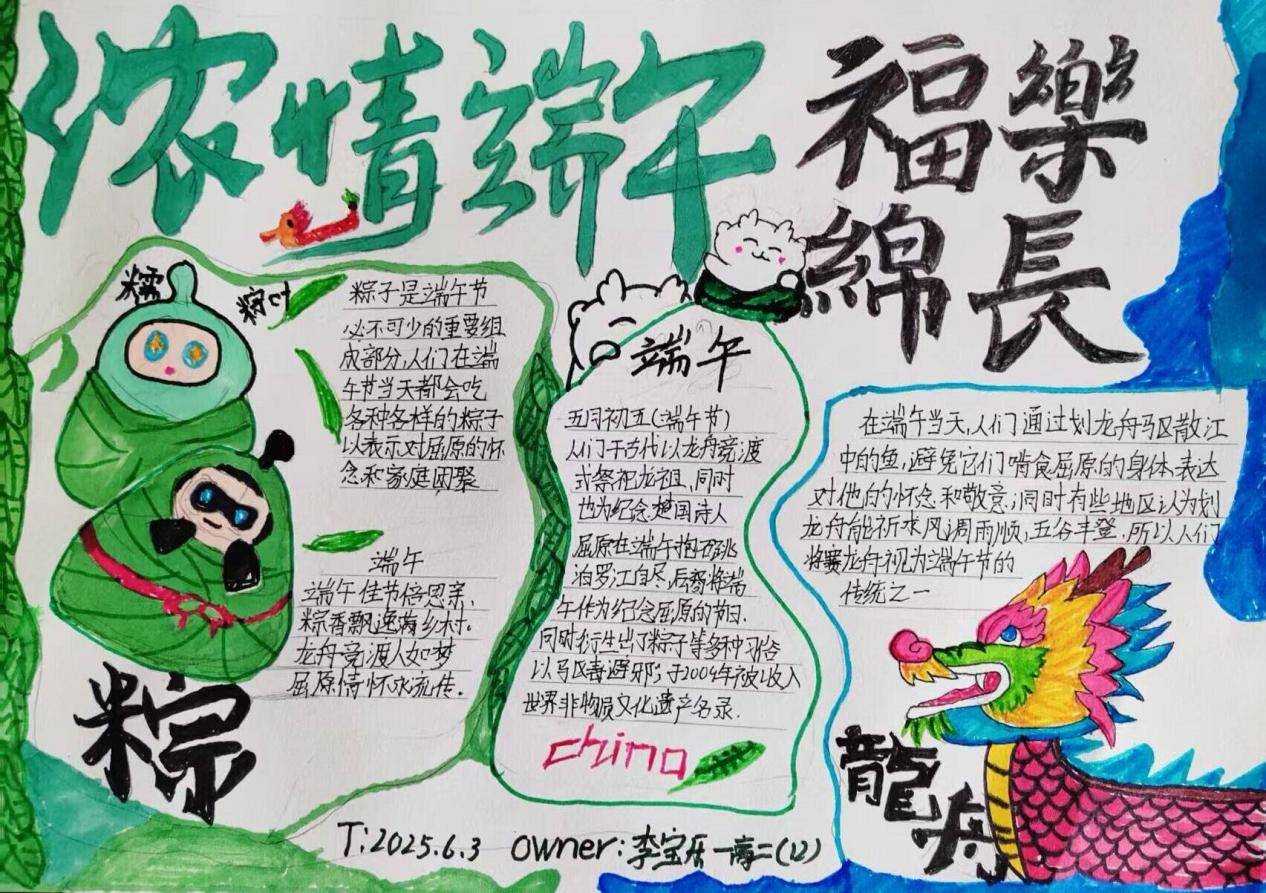 浓情端午
福樂
綿長
糯
粽叶
粽子是端午节
必不可少的重要组
成部分,人们在端
午节当天都会吃
各种各样的粽子
以表示对屈原的怀
念和家庭团聚
端午
端午佳节倍思亲,
粽香飘逸满乡村.
龙舟竞渡人如梦
屈原情怀永流传.
粽
端午
五月初五(端午节)
人们于古代以龙舟竞渡
式祭祀龙祖,同时
也为纪念楚国诗人
屈原在端午抱石跳
泊罗江自尽,后将端
午作为纪念屈原的节日.
同时衍生出了粽子等多种习俗
以驱毒避邪;于2004年被收入
世界非物质文化遗产名录.
china
在端午当天,人们通过划龙舟驱散江
中的鱼,避免它们啃食屈原的身体.表达
对他的怀念和敬意;同时有些地区认为划
龙舟能祈求风调雨顺,五谷丰登.所以人们
将赛龙舟视为端午节的
传统之一
龍舟
T:2025.6.3 owner:李宝乐 一高二(12)